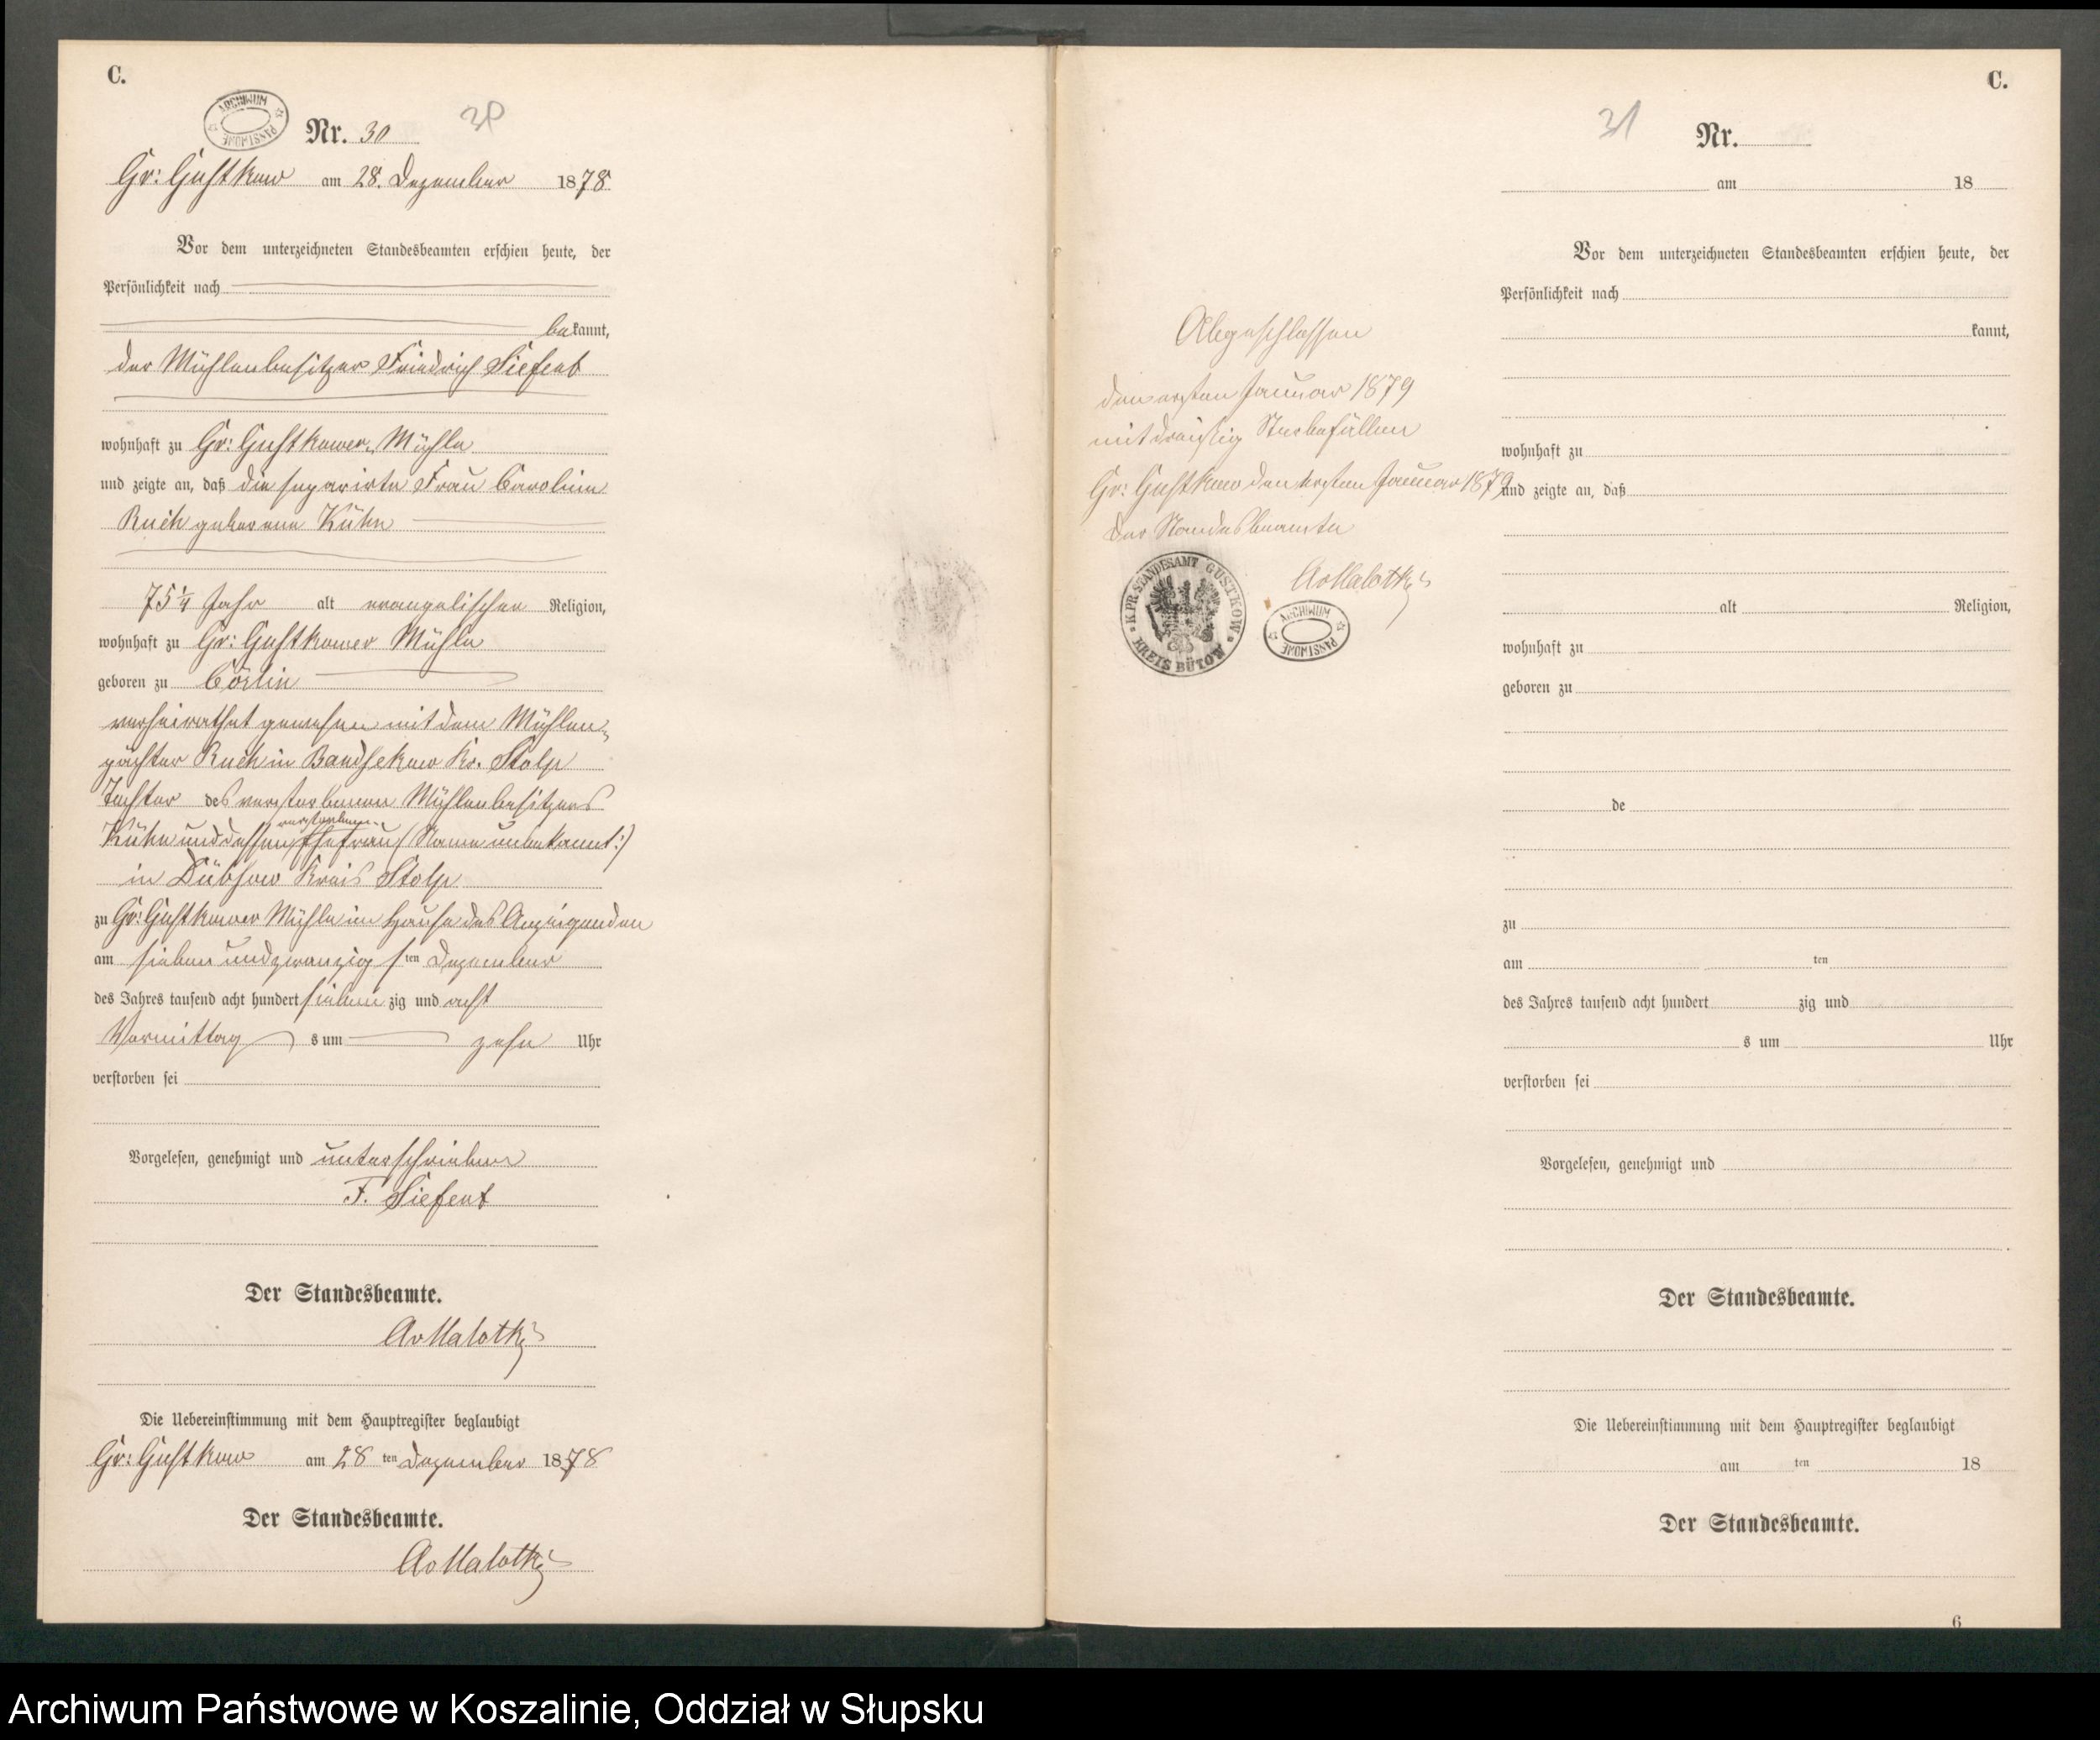 C.
ARCHIWUM PAŃSTWOWE
Nr. 30
30
Gr: Gustkow am 28. Dezember 1878
Vor dem unterzeichneten Standesbeamten erschien heute, der
Persönlichkeit nach
bekannt,
der Mühlenbesitzer Friedrich Siefert
wohnhaft zu Gr: Gustkower Mühle
und zeigte an, daß die separirte Frau Caroline
Ruch geborene Kühn
75 1/4 Jahr alt evangelischer Religion,
wohnhaft zu Gr: Gustkower Mühle
geboren zu Cörlin
verheirathet gewesen mit dem Mühlen-
pächter Ruch in Bandsekow Kr. Stolp
Tochter des verstorbenen Mühlenbesitzers
Kühn und dessen verstorbenen Ehefrau (Name unbekannt:)
in Dübsow Kreis Stolp
zu Gr: Gustkower Mühle im Hause des Anzeigenden
am sieben und zwanzig sten Dezember
des Jahres tausend acht hundert sieben zig und acht
Vormittag s um zehn Uhr
verstorben sei
Vorgelesen, genehmigt und unterschrieben
F. Siefert
Der Standesbeamte.
AvMalotki
Die Uebereinstimmung mit dem Hauptregister beglaubigt
Gr: Gustkow am 28 ten Dezember 1878
Der Standesbeamte.
AvMalotki
Abgeschlossen
den ersten Januar 1879
mit dreißig Sterbefällen
Gr: Gustkow den ersten Januar 1879
Der Standesbeamte
AvMalotki
K. PR. STANDESAMT GUSTKOW
KREIS BÜTOW
ARCHIWUM PAŃSTWOWE
C.
31
Nr.
am 18
Vor dem unterzeichneten Standesbeamten erschien heute, der
Persönlichkeit nach
kannt,
wohnhaft zu
und zeigte an, daß
alt Religion,
wohnhaft zu
geboren zu
de
zu
am ten
des Jahres tausend acht hundert zig und
s um Uhr
verstorben sei
Vorgelesen, genehmigt und
Der Standesbeamte.
Die Uebereinstimmung mit dem Hauptregister beglaubigt
am ten 18
Der Standesbeamte.
6
Archiwum Państwowe w Koszalinie, Oddział w Słupsku